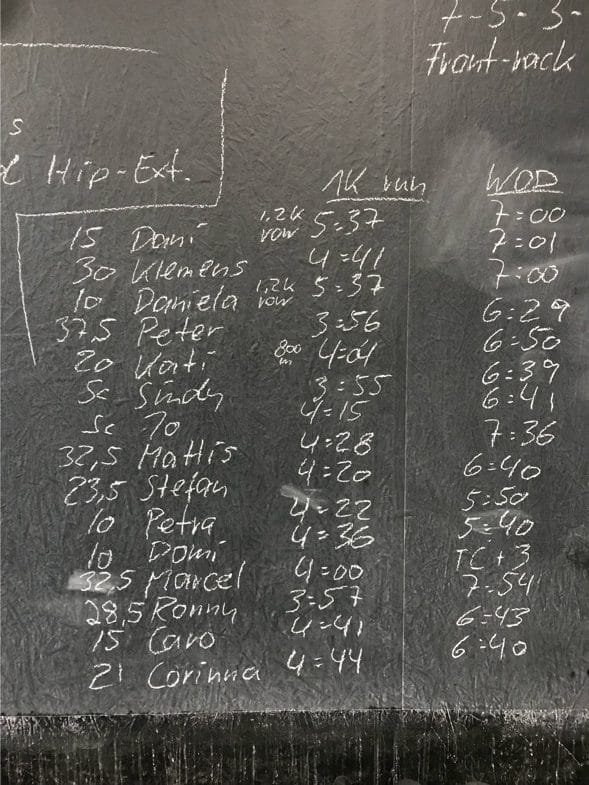 7-5-3-
Front-rack
s
Hip-Ext.
1K run WOD
15 Dani 1,2K row 5:37 7:00
30 Klemens 4:41 7:01
10 Daniela 1,2K row 5:37 7:00
37,5 Peter 3:56 6:29
20 Kati 800 m 4:01 6:50
Sc Sindy 3:55 6:39
Sc Jo 4:15 6:41
32,5 Mattis 4:28 7:36
23,5 Stefan 4:20 6:40
10 Petra 4:22 5:50
10 Domi 4:36 5:40
32,5 Marcel 4:00 TC + 3
28,5 Ronny 3:57 7:54
15 Caro 4:41 6:43
21 Corinna 4:44 6:40